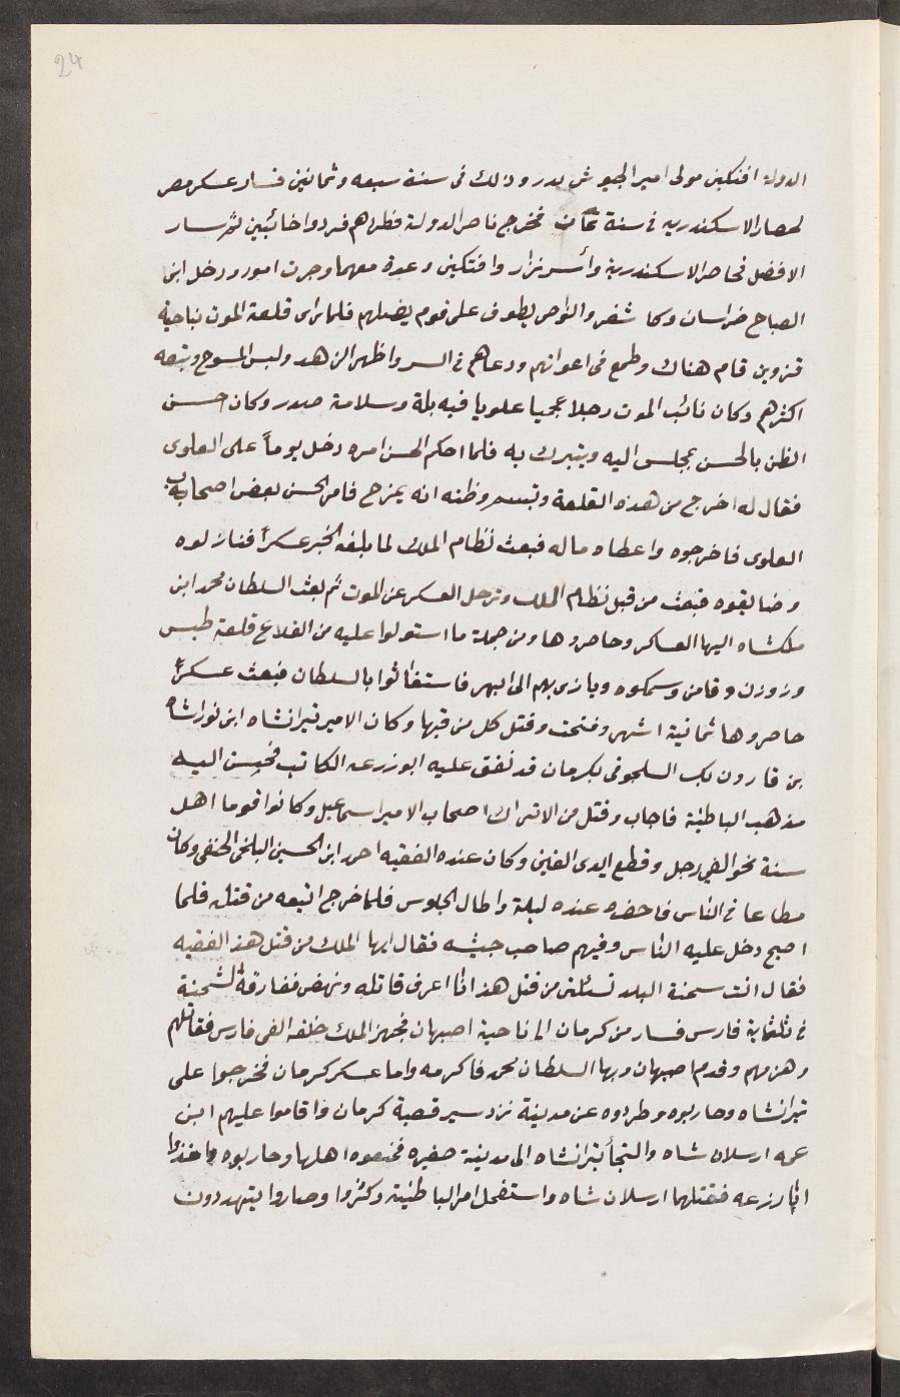 24
الدولة افتكين مولى امير الجيوش بدر وذلك فى سنة سبعه وثمانين فسار عسكر مصر
لحصار الاسكندريه فى سنة ثمان فخرج ناصر الدولة فطردهم فردوا خائبين ثم سار
الافضل فحاصر الاسكندرية وأسر نزار وافتكين وعدة معهما وجرت امور ودخل ابن
الصباح خراسان وكاشغر والنواحى يطوف على قوم يضلهم فلما راى قلعة الموت بناحية
قزوين قام هناك وطمع فى اعوانهم ودعاهم فى السر واظهر الزهد ولبس المسوح وتبعه
اكثرهم وكان نائب الموت رجلا عجميا علويا فيه بلة وسلامة صدر وكان حسن
الظن بالحسن يجلس اليه ويتبرك به فلما احكم الحسن امره دخل يوماً على العلوى
فقال له اخرج من هذه القلعة وتبسم وظنه انه يمزح فامر الحسن بعض اصحابه
العلوى فاخرجوه واعطاه ماله فبعث نظام الملك لما بلغه الخبر عسكراً فنازلوه
وضايقوه فبعث من قبل نظام الملك وترحل العسكر عن الموت ثم بعث السلطان محمد ابن
ملكشاه اليها العساكر وحاصروها ومن جملة ما استولوا عليه من القلاع قلعة طبس
وزوزن وقامن وسمكوه وباذى بهم الى ابهر فاستغاثوا بالسلطان فبعث عسكراً
حاصروها ثمانية اشهر وفتحت وقتل كل من فيها وكان الامير تيرانشاه ابن تورانشاه
بن قارون بك السلجوقى بكرمان قد نفق عليه ابو زرعه الكاتب فحسن اليه
مذهب الباطنية فاجاب وقتل من الاتراك اصحاب الامير اسماعيل وكانوا قوما اهل
سنة نحو الفى رجل وقطع ايدى الفين وكان عنده الفقيه احمد ابن الحسين البلخى الحنفى وكان
مطاعا فى الناس فاحضره عنده ليلة واطال الجلوس فلما خرج اتبعه من قتله فلما
اصبح دخل عليه الناس وفيهم صاحب جيشه فقال ايها الملك من قتل هذ الفقيه
فقال انت سحنة البلد تسئلنى من قتل هذ انا اعرف قاتله ونهض ففارقه الشحنة
فى ثلثماية فارس فسار من كرمان الى ناحية اصبهان فجهز الملك خلفه الفى فارس فقاتلهم
وهزمهم وقدم اصبهان وبها السلطان محمد فاكرمه واما عسكر كرمان فخرجوا على
تيرانشاه وحاربوه وطردوه عن مدينة نردسير قصبة كرمان واقاموا عليهم ابن
عمه ارسلان شاه والتجأ تيرانشاه الى مدينة صغيره فمنعوه اهلها وحاربوه واخذوا
ابا زرعه فقتلهما ارسلان شاه واستفحل امر الباطنية وكثروا وصاروا يتهددون